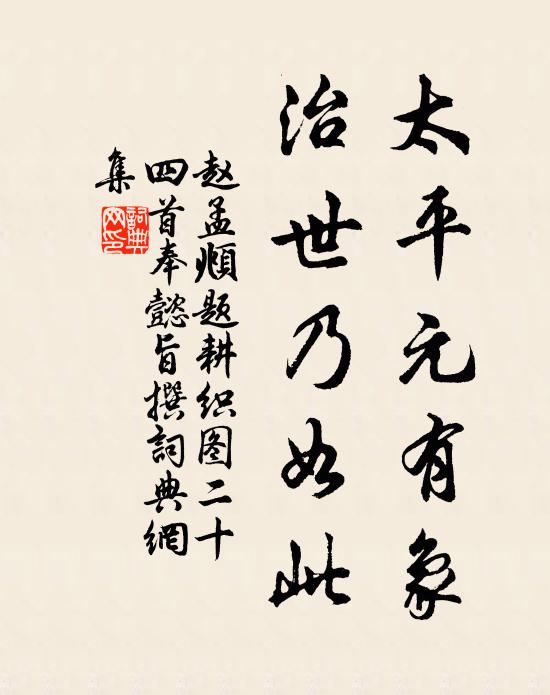 太平元有象
治世乃如此
赵孟頫题耕织图二十
四首奉懿旨撰詞典網
集
詞典
网印